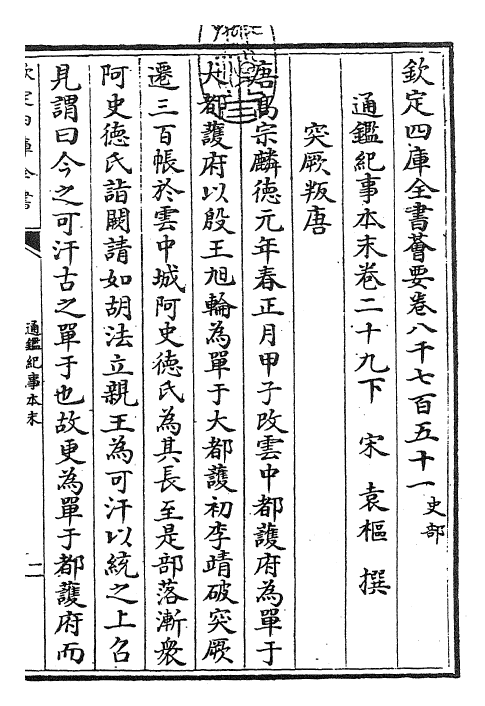 欽定四庫全書薈要卷八千七百五十一 史部
通鑑紀事本末卷二十九下 宋 袁樞 撰
突厥叛唐
唐高宗麟德元年春正月甲子改雲中都護府為單于
大都護府以殷王旭輪為單于大都護初李靖破突厥
遷三百帳於雲中城阿史德氏為其長至是部落漸衆
阿史德氏詣闕請如胡法立親王為可汗以統之上召
見謂曰今之可汗古之單于也故更為單于都護府而
欽定四庫全書
通鑑紀事本末